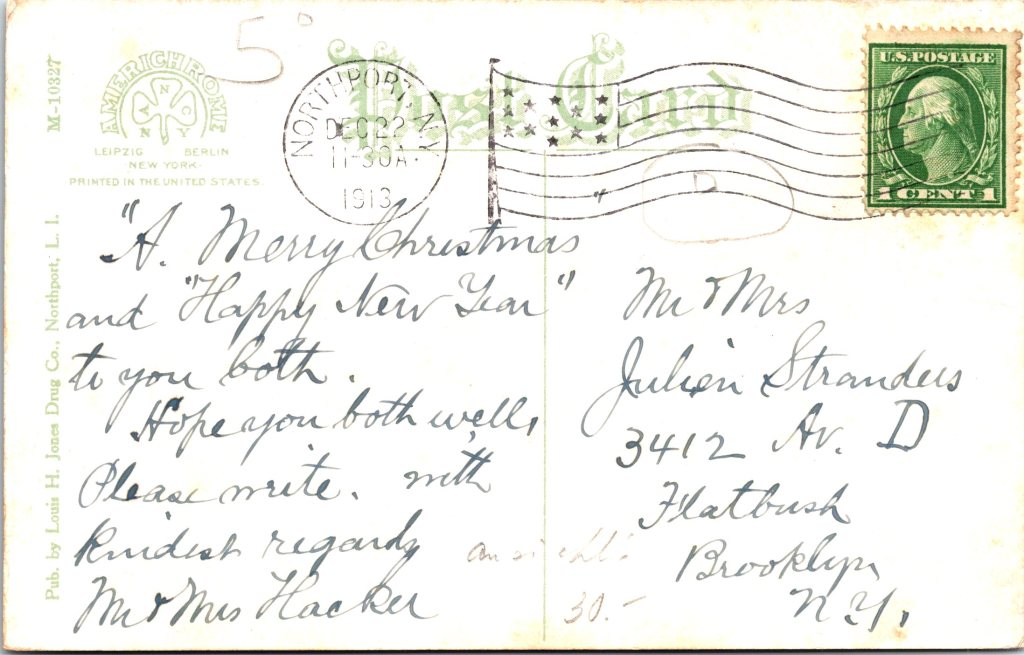 M-10327
AMERICHROME
ANCNY
LEIPZIG BERLIN
NEW YORK
PRINTED IN THE UNITED STATES.
Pub. by Louis H. Jones Drug Co., Northport, L. I.
5
Post Card
NORTHPORT, N.Y.
DEC 22
11-30A
1913
U.S. POSTAGE
1 CENT 1
D
"A. Merry Christmas"
and "Happy New Year"
to you both.
Hope you both well,
Please write. with
kindest regards
Mr & Mrs Hacker
30.-
Mr & Mrs
Julien Stranders
3412 Av. D
Flatbush
Brooklyn
N.Y.